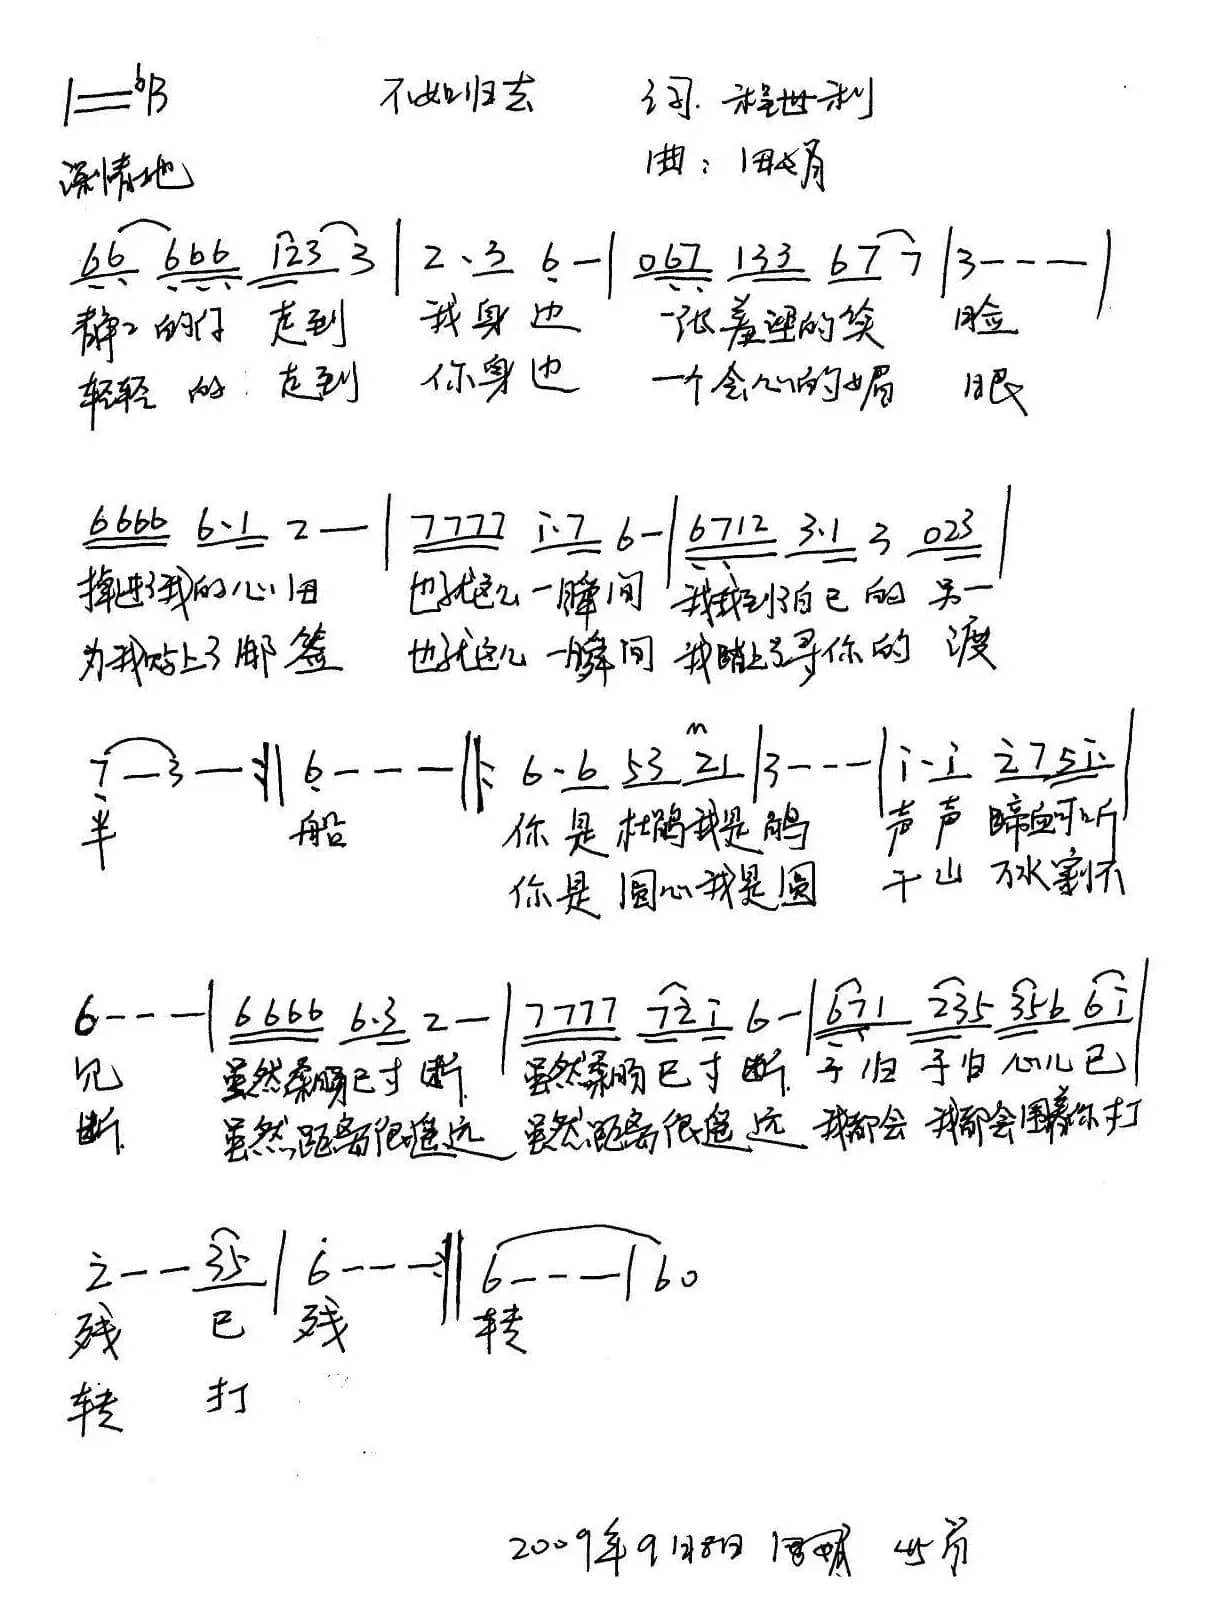 1=bB 不如归去 词:程世利
深情地 曲:田娟
66 666 123 3 | 2·3 6— | 067 133 67 7 | 3---- |
静静的你 走到 我身边 一张羞涩的笑 脸
轻轻 的 走到 你身边 一个会心的媚 眼
6666 6·1 2— | 7777 i·7 6- | 6712 3·1 3 023 |
掉进了我的心田 也就这么一瞬间 我找到了自己的 另一
为我贴上了邮签 也就这么一瞬间 我踏上了寻你的 渡
7—3—:‖ 6---- ‖: 6·6 53 21 | 3---- | i·i 275i· |
半 船 你是杜鹃我是鹃 声声 啼血可听
你是 圆心我是圆 千山 万水割不
6---- | 6666 6·3 2— | 7777 72i 6- | 671 235 356 6i |
见 虽然柔肠已寸断 虽然柔肠已寸断 子归 子归 心儿已
断 虽然距离很遥远 虽然距离很遥远 我都会 我都会围着你打
2---35 | 6----:‖ 6---- | 60
残 已 残 转
转 打
2009年9月8日 田娟